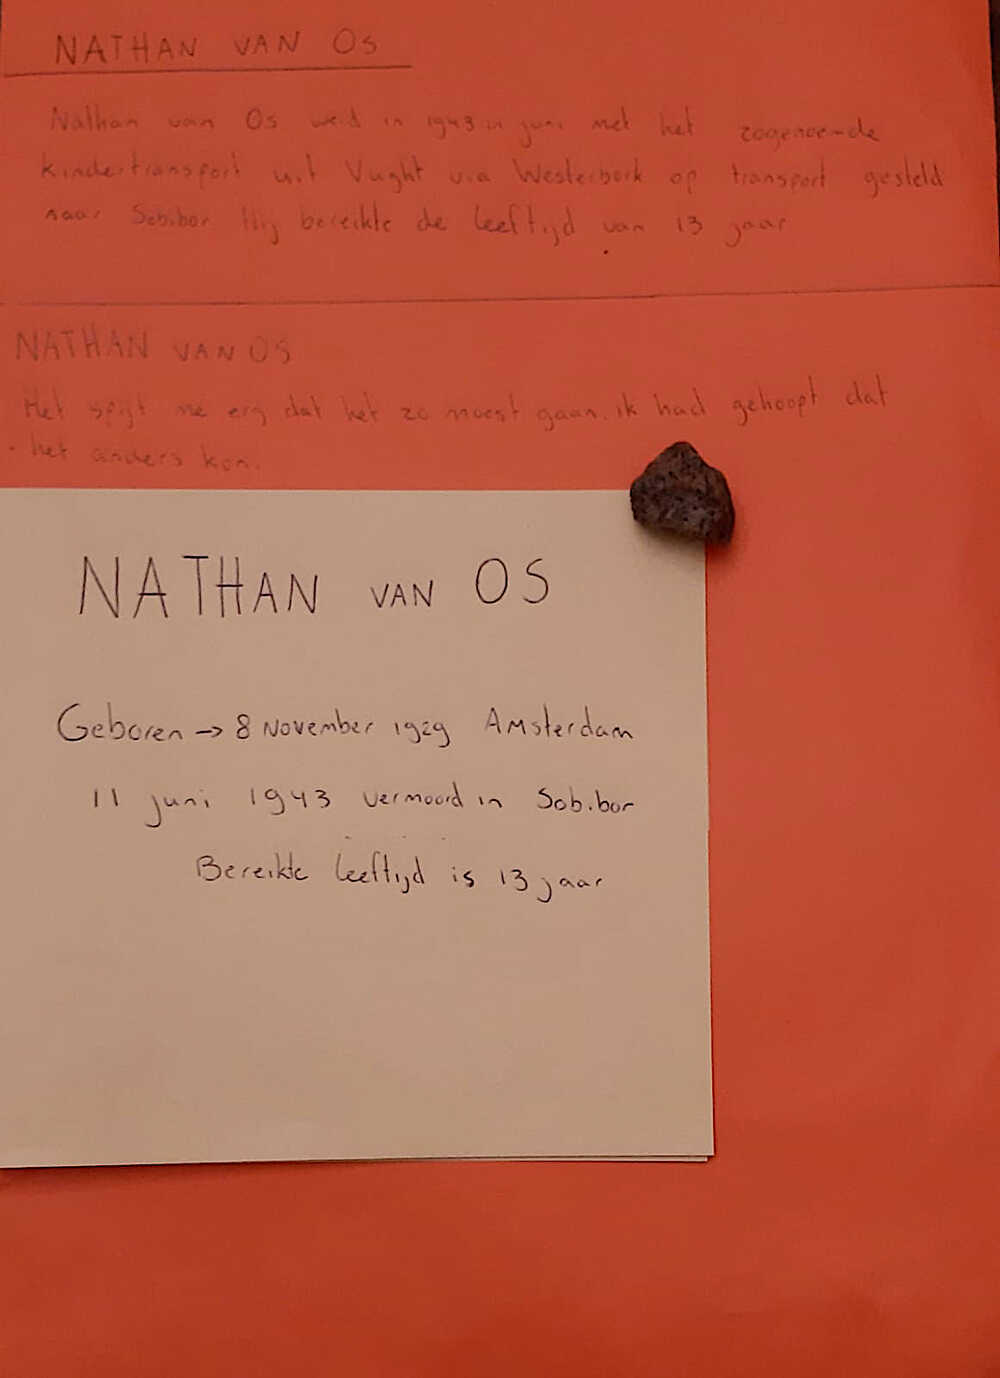 NATHAN VAN OS
Nathan van Os werd in 1943 in juni met het zogenoemde
kindertransport uit Vught via Westerbork op transport gesteld
naar Sobibor Hij bereikte de leeftijd van 13 jaar
NATHAN VAN OS
Het spijt me erg dat het zo moest gaan. ik had gehoopt dat
het anders kon.
NATHAN VAN OS
Geboren → 8 November 1929 Amsterdam
11 juni 1943 vermoord in Sobibor
Bereikte leeftijd is 13 jaar